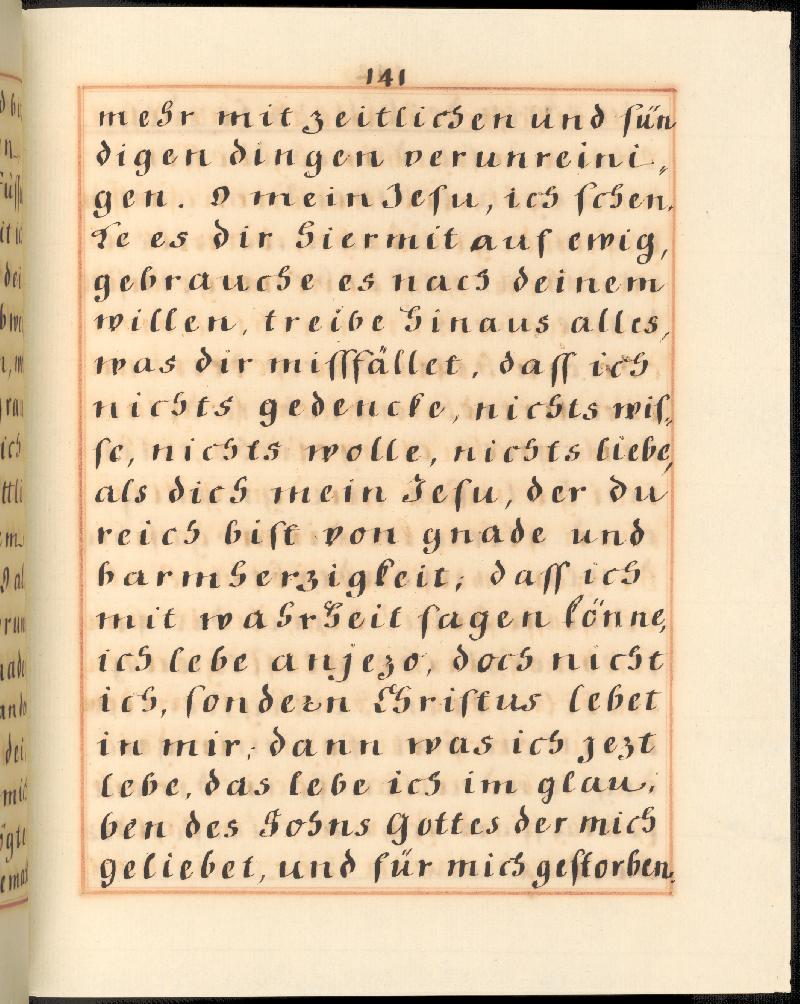 141
mehr mit zeitlichen und sün
digen dingen verunreini„
gen. O mein Jesu, ich schen„
ke es dir hiermit auf ewig,
gebrauche es nach deinem
willen, treibe hinaus alles,
was dir missfället, dass ich
nichts gedencke, nichts wis„
se, nichts wolle, nichts liebe,
als dich mein Jesu, der du
reich bist von gnade und
barmherzigkeit, dass ich
mit wahrheit sagen könne,
ich lebe anjezo, doch nicht
ich, sondern Christus lebet
in mir, dann was ich jezt
lebe, das lebe ich im glau„
ben des Sohns Gottes der mich
geliebet, und für mich gestorben.